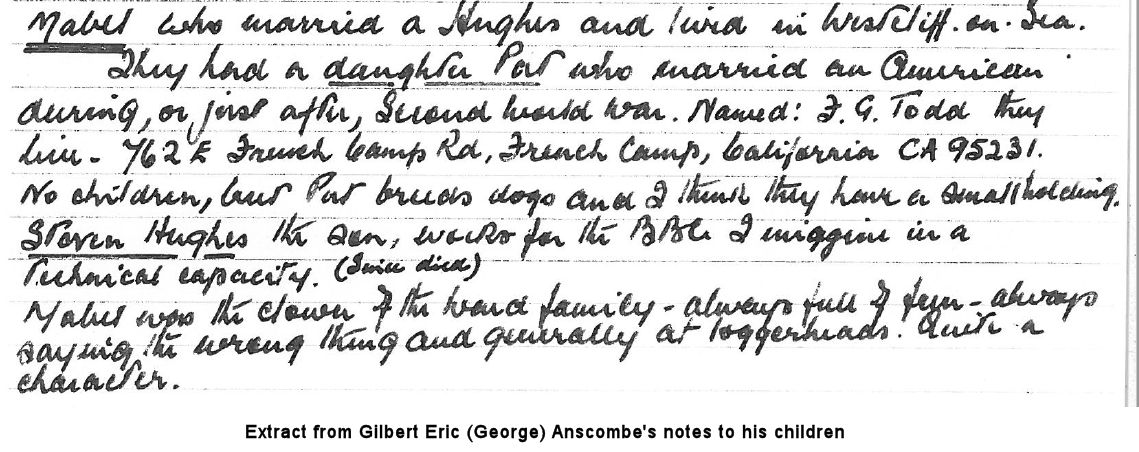 Mabel who married a Hughes and lived in Westcliff-on-Sea.
They had a daughter Pat who married an American
during, or just after, Second World War. Named: F. G. Todd they
live - 762 E French Camp Rd, French Camp, California CA 95231.
No children, but Pat breeds dogs and I think they have a small holding.
Steven Hughes the son, works for the BBC I imiggine in a
technical capacity. (Since died)
Mabel was the clown of the Ward family - always full of fun - always
saying the wrong thing and generally at loggerheads. Quite a
character.
Extract from Gilbert Eric (George) Anscombe's notes to his children